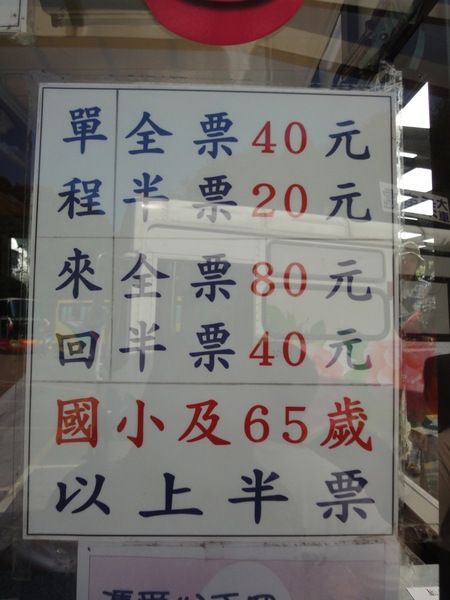 單全票40元
程半票20元
來全票80元
回半票40元
國小及65歲
以上半票